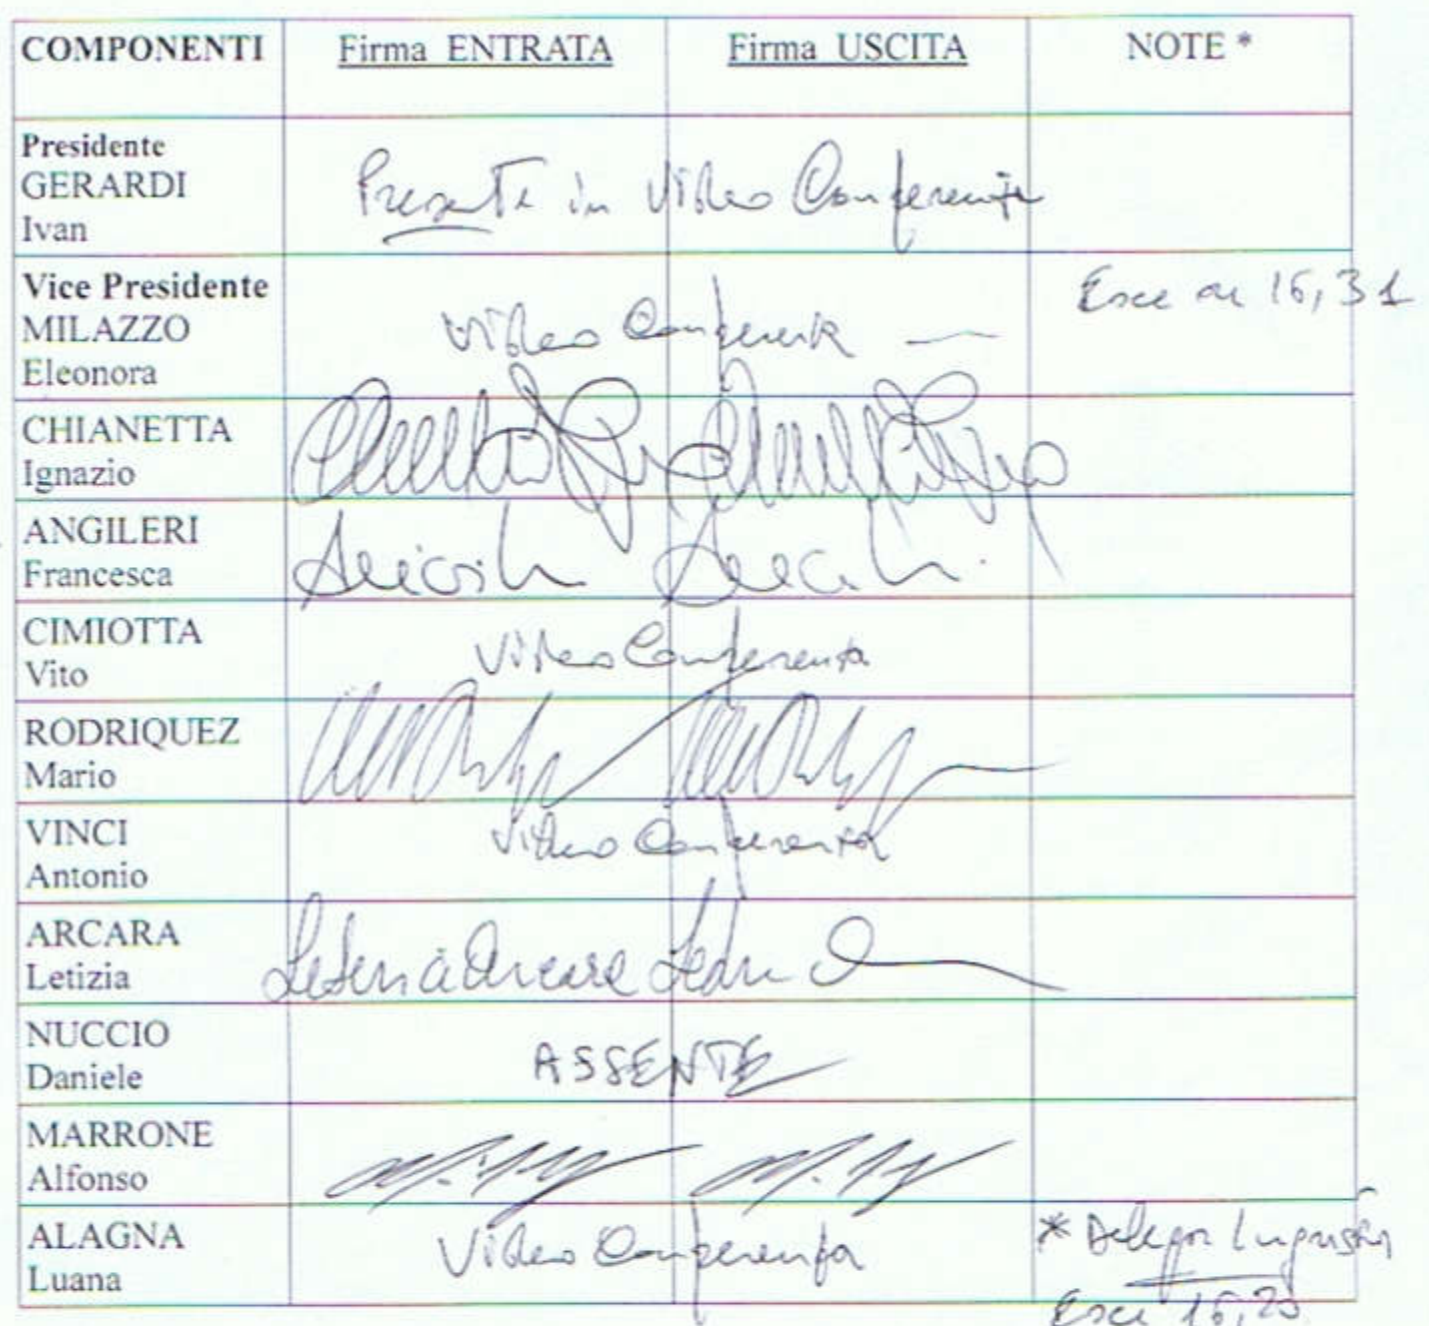 COMPONENTI Firma ENTRATA Firma USCITA NOTE *
Presidente
GERARDI
Ivan
Presente in Video Conferenza
Vice Presidente
MILAZZO
Eleonora
Video Conferenza
Esce ore 16,31
CHIANETTA
Ignazio
ANGILERI
Francesca
CIMIOTTA
Vito
Video Conferenza
RODRIQUEZ
Mario
VINCI
Antonio
Video Conferenza
ARCARA
Letizia
Letizia Arcara
NUCCIO
Daniele
ASSENTE
MARRONE
Alfonso
ALAGNA
Luana
Video Conferenza
* Delega
Esce